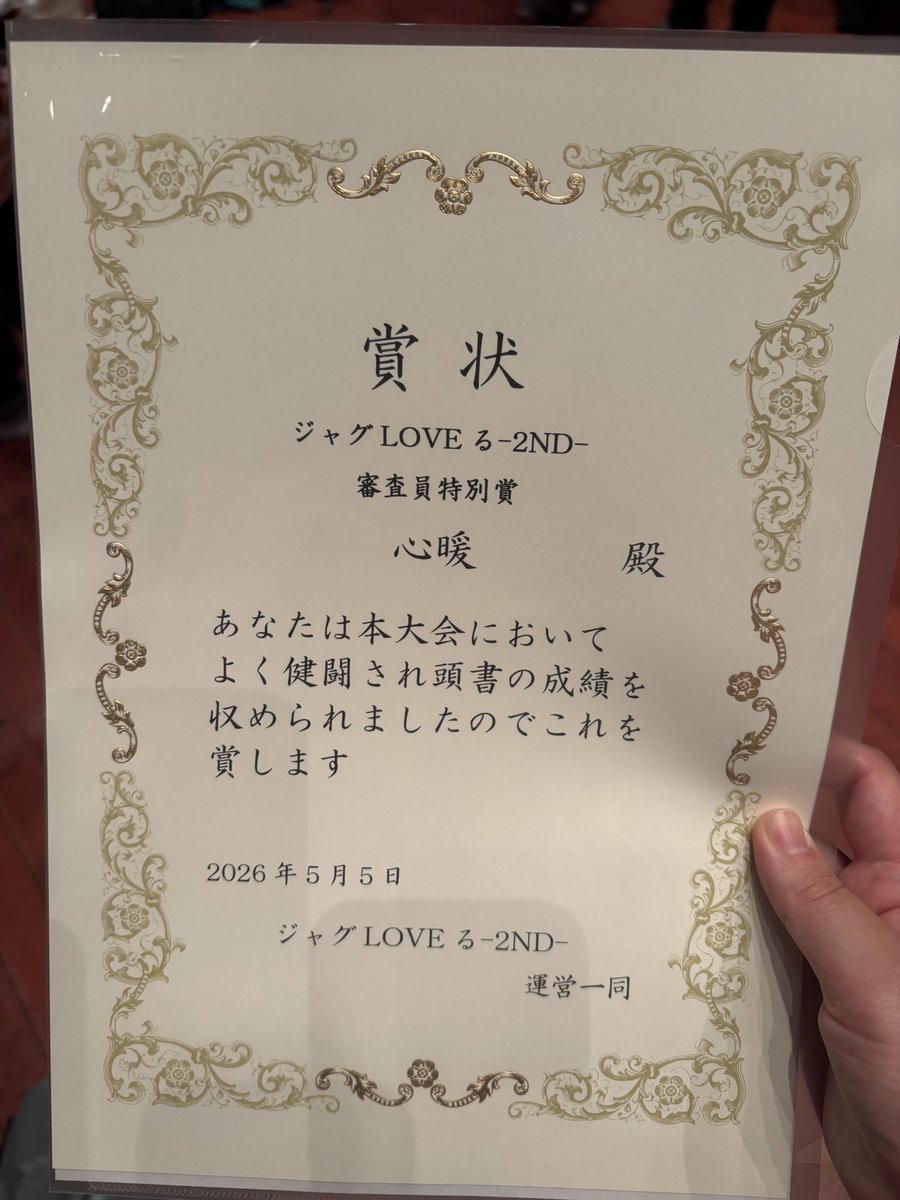 賞状
ジャグLOVEる-2ND-
審査員特別賞
心暖 殿
あなたは本大会において
よく健闘され頭書の成績を
収められましたのでこれを
賞します
2026年5月5日
ジャグLOVEる-2ND-
運営一同